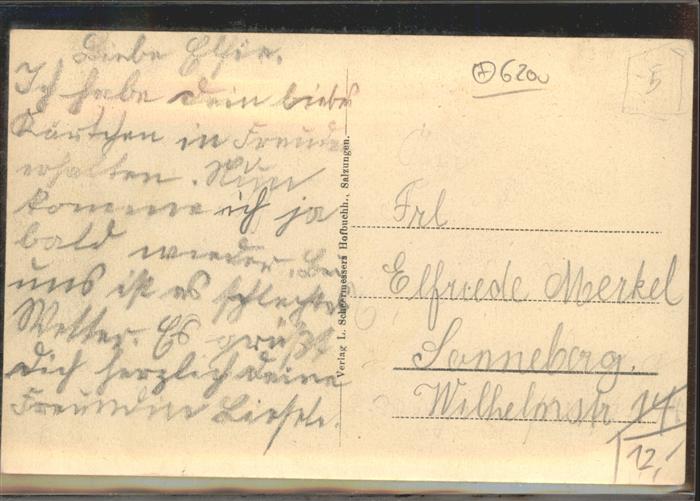 Liebe Elfie.
Ich habe dein liebes
Kärtchen in Freude
erhalten. Nun
komme ich ja
bald wieder. Bei
uns ist es schlechtes
Wetter. Es grüßt
dich herzlich deine
Freundin Liesele.
Verlag L. Scheermessers Hofbuchh., Salzungen.
6200
5
Frl
Elfriede Merkel
Sonneberg.
Wilhelmstr 14
12,